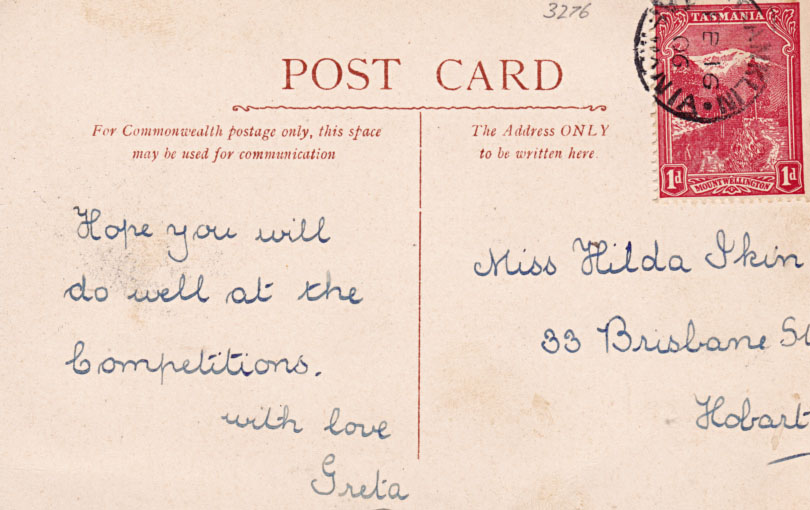 3276
POST CARD
For Commonwealth postage only, this space
may be used for communication
The Address ONLY
to be written here.
TASMANIA
1d
MOUNT WELLINGTON
1d
Hope you will
do well at the
Competitions.
with love
Greta
Miss Hilda Ikin
33 Brisbane St
Hobart